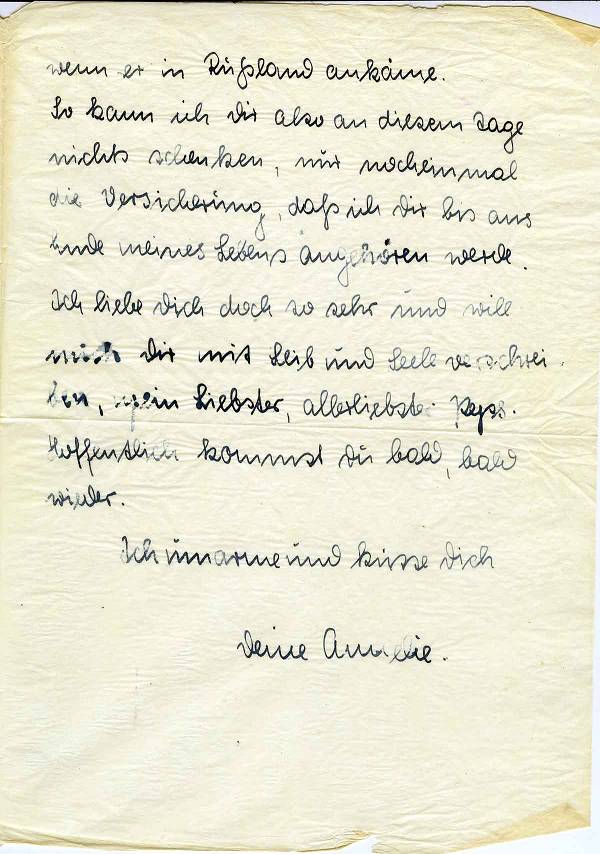 wenn er in Rußland ankäme.
So kann ich Dir also an diesem Tage
nichts schenken, nur nocheinmal
die Versicherung, daß ich Dir bis ans
Ende meines Lebens angehören werde.
Ich liebe Dich doch so sehr und will
mich Dir mit Leib und Seele verschrei-
ben, mein Liebster, allerliebster Peps.
Hoffentlich kommst Du bald, bald
wieder.
Ich umarme und küsse Dich
Deine Annelie.